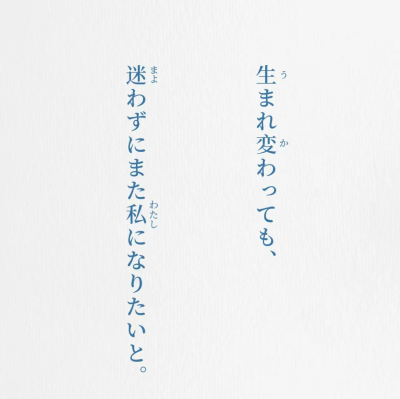 生まれ変わっても、
迷わずにまた私になりたいと。